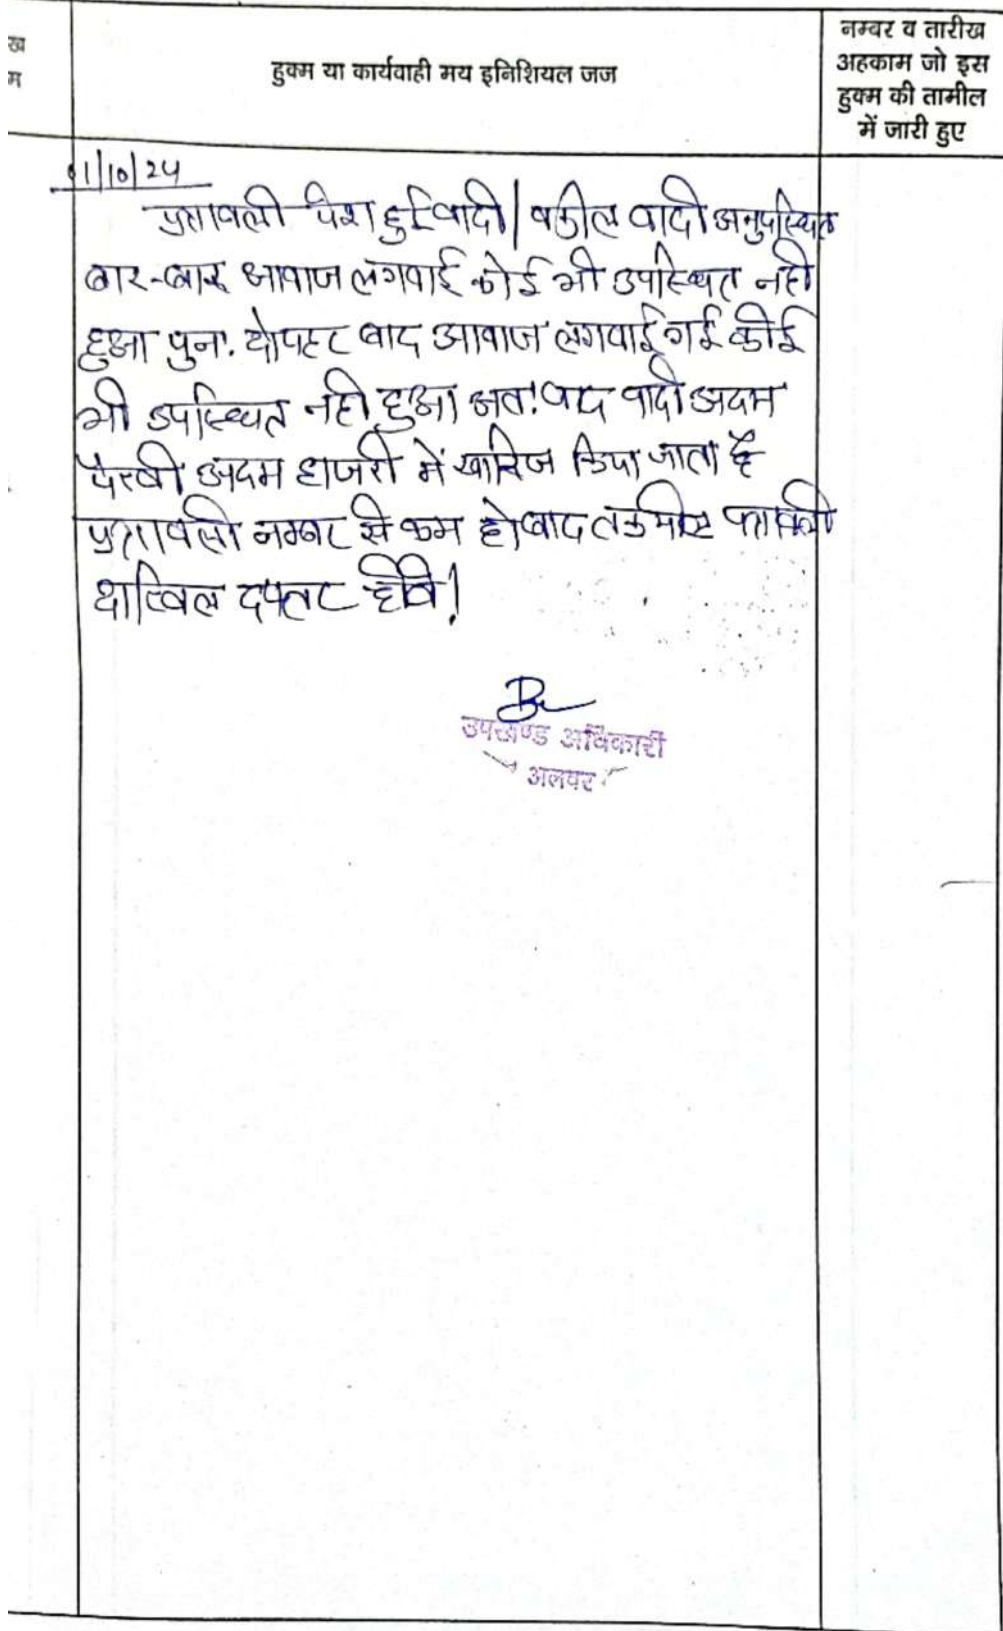 ख
म
हुक्म या कार्यवाही मय इनिशियल जज
नम्बर व तारीख
अहकाम जो इस
हुक्म की तामील
में जारी हुए
01/10/24
पत्रावली पेश हुई वादी/वकील वादी अनुपस्थित
बार-बार आवाज लगवाई कोई भी उपस्थित नही
हुआ पुनः दोपहर बाद आवाज लगवाई गई कोई
भी उपस्थित नही हुआ अतः वाद वादी अदम
पैरवी अदम हाजरी में खारिज किया जाता है
पत्रावली नम्बर से कम हो बाद तकमील पत्रावली
दाखिल दफ्तर होवे।
उपखण्ड अधिकारी
अलवर